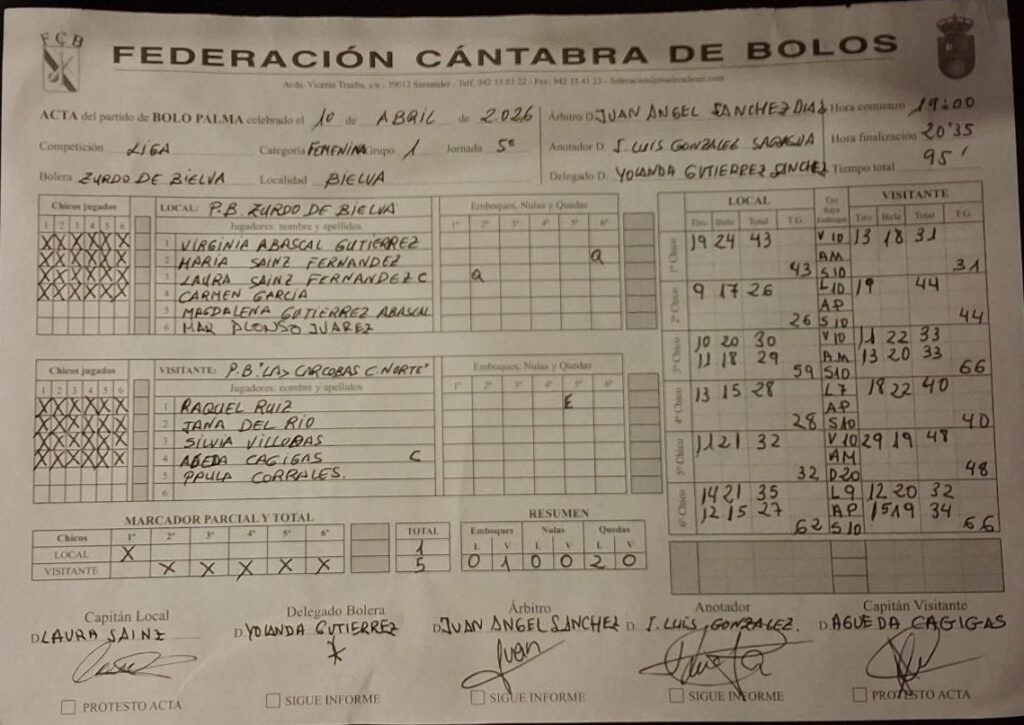 FCB
FEDERACIÓN CÁNTABRA DE BOLOS
Avda. Vicente Trueba, s/n - 39012 Santander - Telf. 942 33 53 22 - Fax: 942 35 41 23 -
ACTA del partido de BOLO PALMA celebrado el 10 de ABRIL de 2026
Competición LIGA Categoría FEMENINA Grupo 1 Jornada 5ª
Bolera ZURDO DE BIELVA Localidad BIELVA
Árbitro D. JUAN ANGEL SANCHEZ DIAS Hora comienzo 19:00
Anotador D. J. LUIS GONZALEZ Hora finalización 20'35
Delegado D. YOLANDA GUTIERREZ SANCHEZ Tiempo total 95'
Chicos jugados LOCAL: P.B. ZURDO DE BIELVA Emboques, Nulas y Quedas
1 2 3 4 5 6 Jugadores: nombre y apellidos 1ª 2ª 3ª 4ª 5ª 6ª
X X X X X X 1 VIRGINIA ABASCAL GUTIERREZ
X X X X X X 2 MARIA SAINZ FERNANDEZ Q
X X X X X X 3 LAURA SAINZ FERNANDEZ C Q
X X X X X X 4 CARMEN GARCIA
5 MAGDALENA GUTIERREZ ABASCAL
6 MAR ALONSO JUAREZ
Chicos jugados VISITANTE: P.B. "LAS CARCOBAS C. NORTE" Emboques, Nulas y Quedas
1 2 3 4 5 6 Jugadores: nombre y apellidos 1ª 2ª 3ª 4ª 5ª 6ª
X X X X X X 1 RAQUEL RUIZ E
X X X X X X 2 JANA DEL RIO
X X X X X X 3 SILVIA VILLOBAS
X X X X X X 4 AGEDA CAGIGAS C
5 PAULA CORRALES.
6
MARCADOR PARCIAL Y TOTAL
Chicos 1º 2º 3º 4º 5º 6º TOTAL
LOCAL X 1
VISITANTE X X X X X 5
RESUMEN
Emboques Nulas Quedas
L V L V L V
0 1 0 0 2 0
LOCAL VISITANTE
Tiro Birle Total T.G. Tiro Raya Emboque Tiro Birle Total T.G.
1º Chico 19 24 43 V 10 13 18 31
AM
43 S10 31
2º Chico 9 17 26 L10 19 44
AP
26 S10 44
3º Chico 10 20 30 V10 11 22 33
11 18 29 A.M 13 20 33
59 S10 66
4º Chico 13 15 28 L7 18 22 40
AP
28 S10 40
5º Chico 11 21 32 V 10 29 19 48
AM
32 D20 48
6º Chico 14 21 35 L9 12 20 32
12 15 27 AP 15 19 34
62 S10 66
Capitán Local Delegado Bolera Árbitro Anotador Capitán Visitante
D. LAURA SAINZ D. YOLANDA GUTIERREZ D. JUAN ANGEL SANCHEZ D. J. LUIS GONZALEZ. D. AGUEDA CAGIGAS
Juan
PROTESTO ACTA SIGUE INFORME SIGUE INFORME SIGUE INFORME PROTESTO ACTA